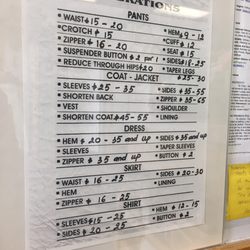 PANTS
*WAIST $15-20 *HEM $9-12
*CROTCH $15 *CUFF $12
*ZIPPER $16-20 *SEAT $15
*SUSPENDER BUTTON $2 per 1 *SIDES $18-25
*REDUCE THROUGH HIPS $20 *TAPER LEGS
COAT - JACKET $25-30
*SLEEVES $25-35 *SIDES $35-55
*SHORTEN BACK *ZIPPER $35-65
*VEST *SHOULDER
*SHORTEN COAT $45-55 *LINING
DRESS
*HEM $20-35 and up *SIDES $35 and up
*SLEEVES *TAPER SLEEVES
*ZIPPER $35 and up *BUTTON $2
SKIRT
*WAIST $16-25 *SIDES $20-30
*HEM *LINING
*ZIPPER $16-25
SHIRT
*SLEEVES $15-25 *HEM $12-15
*SIDES $20-25 *BUTTON $2